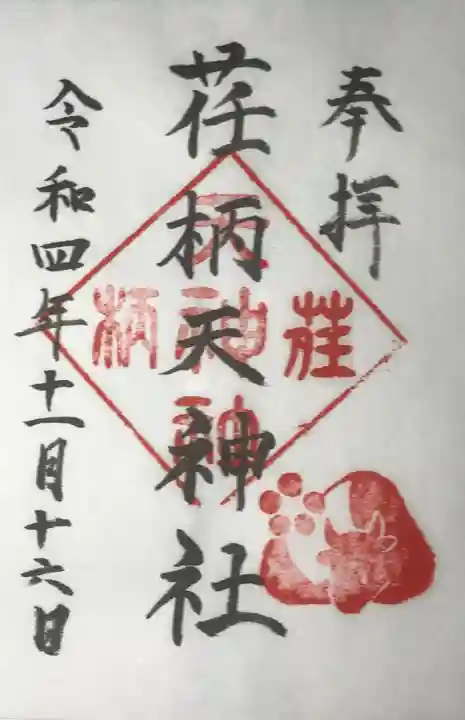 奉拝
荏柄天神社
荏
天神社
柄
令和四年十一月十六日